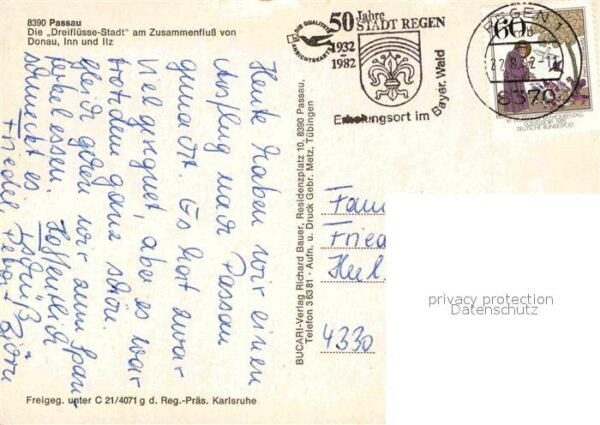 8390 Passau
Die „Dreiflüsse-Stadt" am Zusammenfluß von
Donau, Inn und Ilz
Heute haben wir einen
Ausflug nach Passau
gemacht. Es hat zwar
viel geregnet, aber es war
trotzdem ganz schön.
Gleich gehen wir zum Span-
ferkelessen. Hoffentlich
schmeckt es.
Grüß
Friedel, Peter + Björn
Freigeg. unter C 21/4071 g d. Reg.-Präs. Karlsruhe
BUCARI-Verlag Richard Bauer, Residenzplatz 10, 8390 Passau,
Telefon 3 63 81 · Aufn. u. Druck Gebr. Metz, Tübingen
DIE QUALITÄTS
ANSICHTSKARTE
50 Jahre
STADT REGEN
1932 –
1982
Erholungsort im Bayer. Wald
REGEN 1
22.8.
8370
60
DEUTSCHE BUNDESPOST
Fam
Fried
4330
privacy protection
Datenschutz